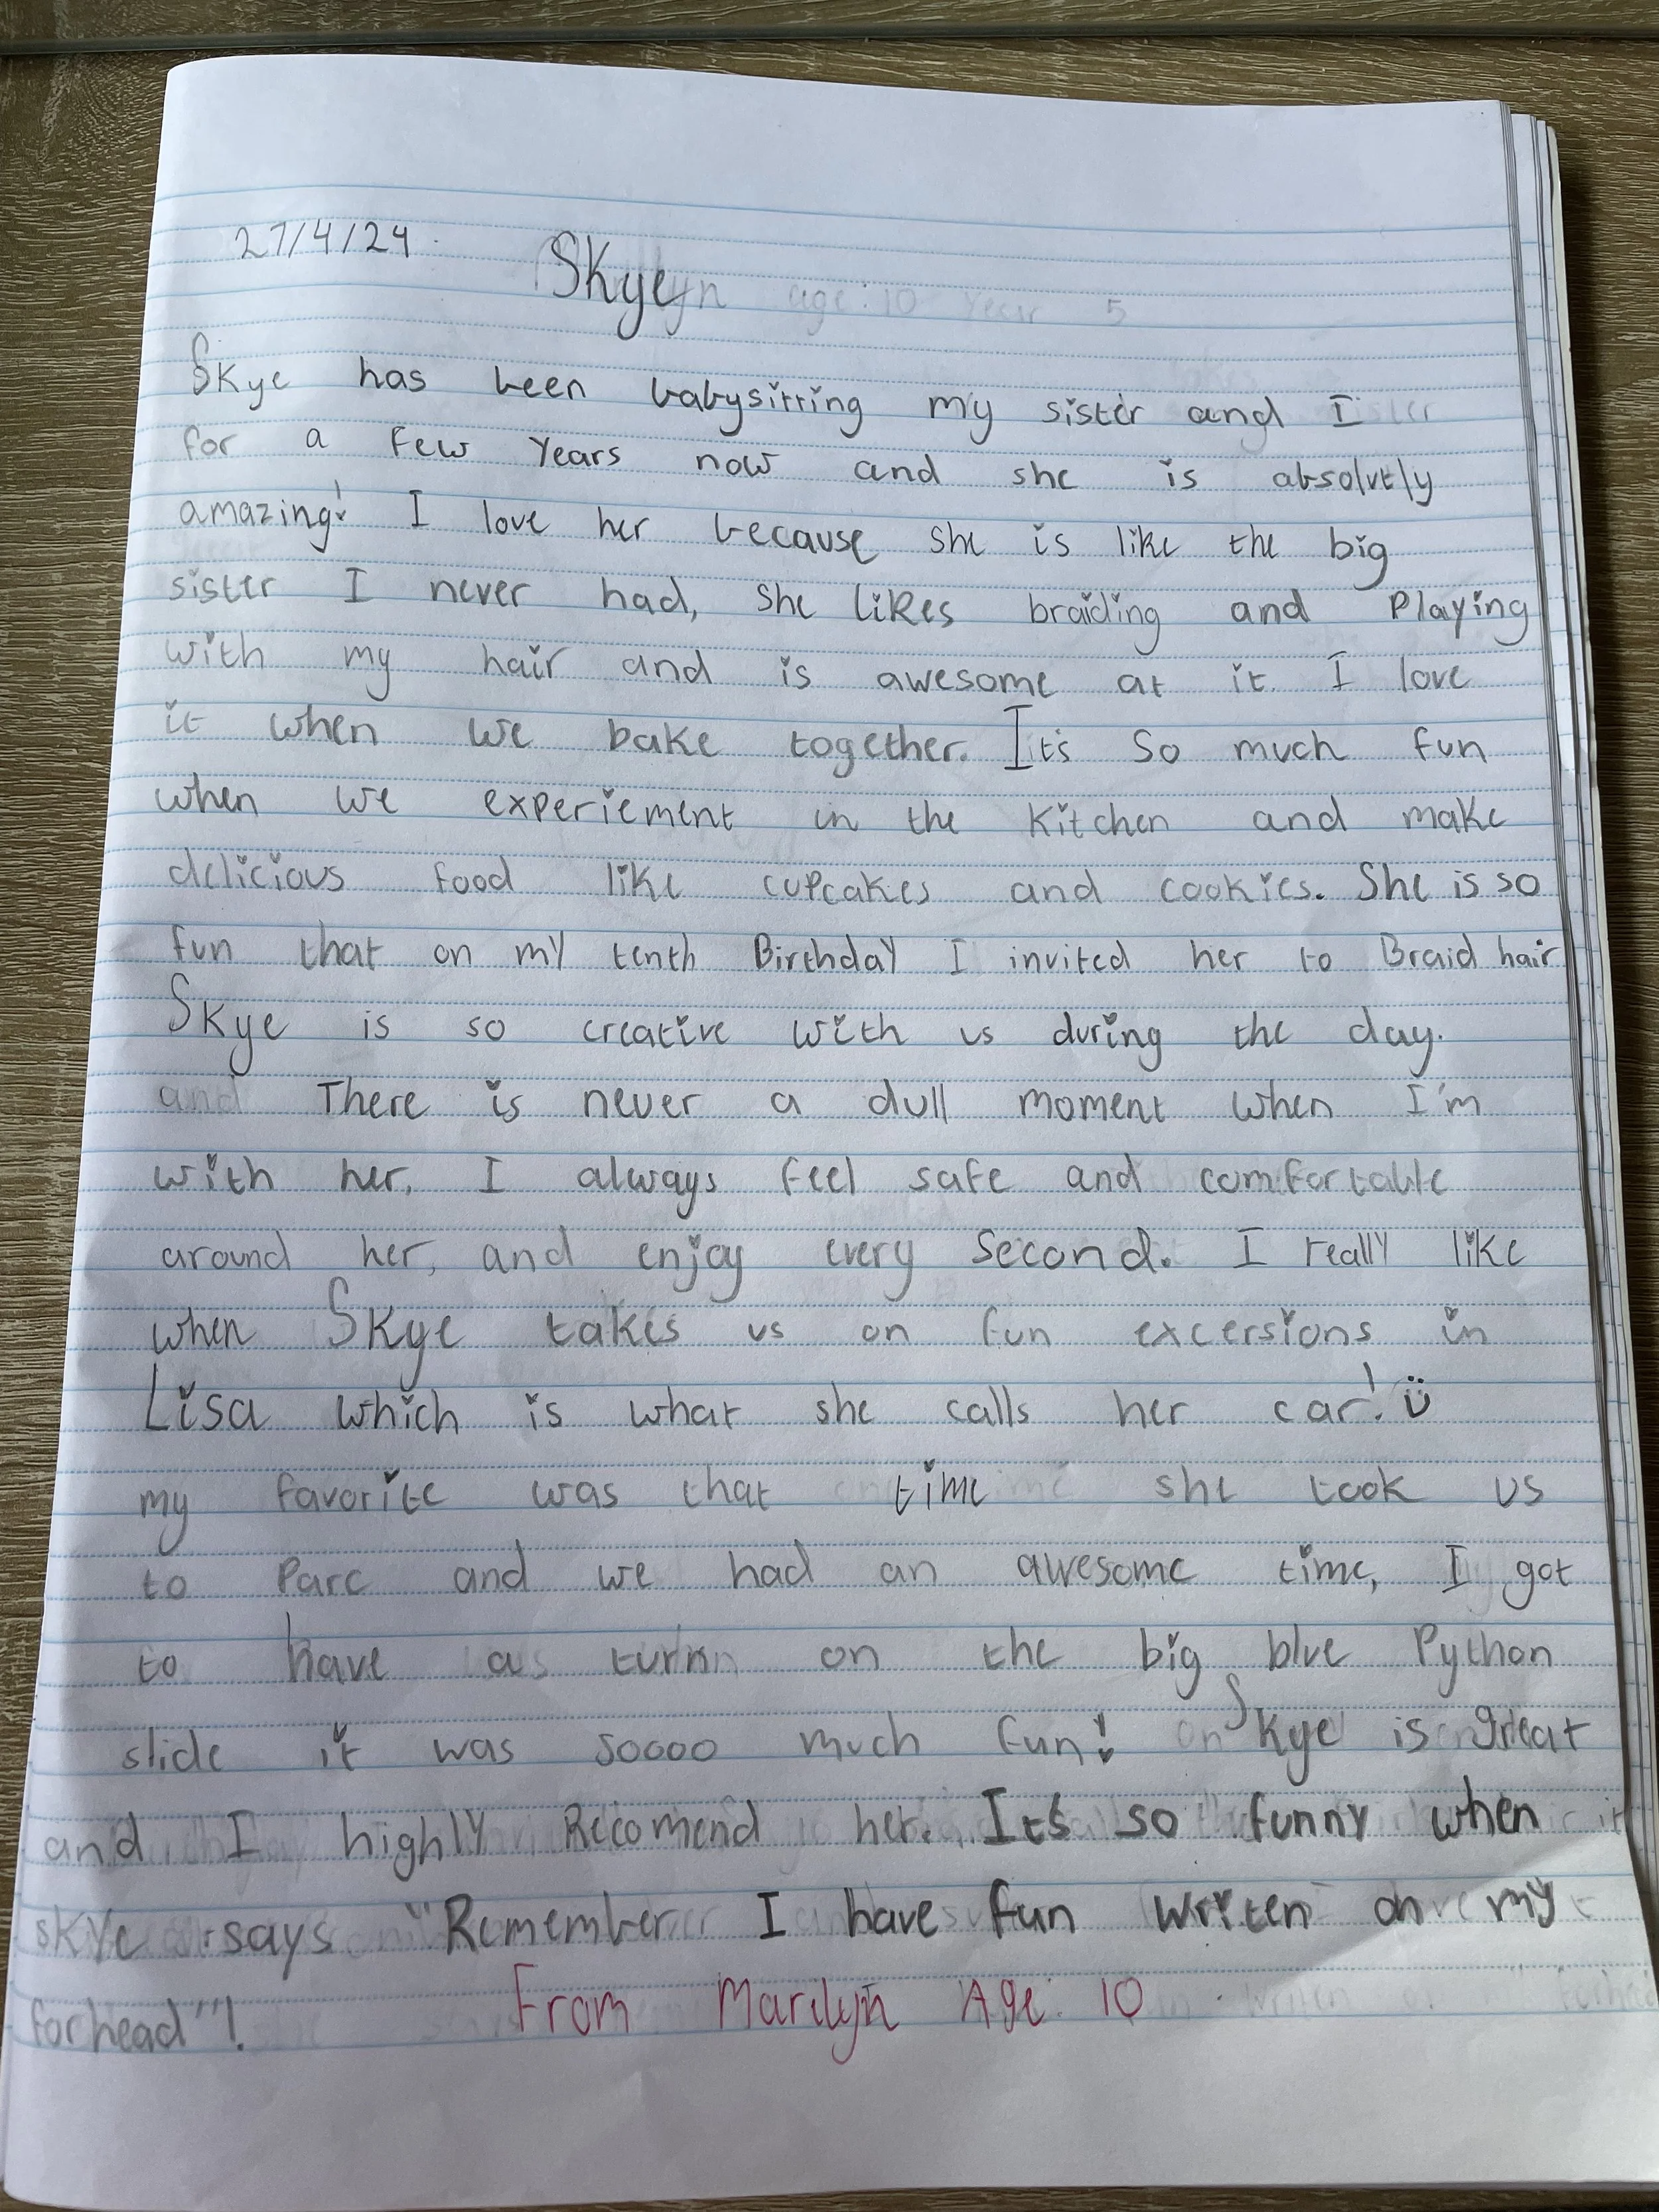 27/4/24
Skye
Skye has been babysitting my sister and I
for a few Years now and she is absolutly
amazing! I love her because she is like the big
sister I never had, she likes braiding and Playing
with my hair and is awesome at it. I love
it when we bake together. It's so much fun
when we experiement in the kitchen and make
delicious food like cupcakes and cookies. She is so
fun that on my tenth Birthday I invited her to Braid hair
Skye is so creative with us during the day.
There is never a dull moment when I'm
with her. I always feel safe and comfortable
around her, and enjoy every second. I really like
when Skye takes us on fun excersions in
Lisa which is what she calls her car! ü
my favorite was that time she took us
to Parc and we had an awesome time, I got
to have a turn on the big blue Python
slide it was soooo much fun! Skye is great
and I highly Recomend her. It's so funny when
skye says "Remember I have fun writen on my
forhead"!
From Marilyn Age: 10